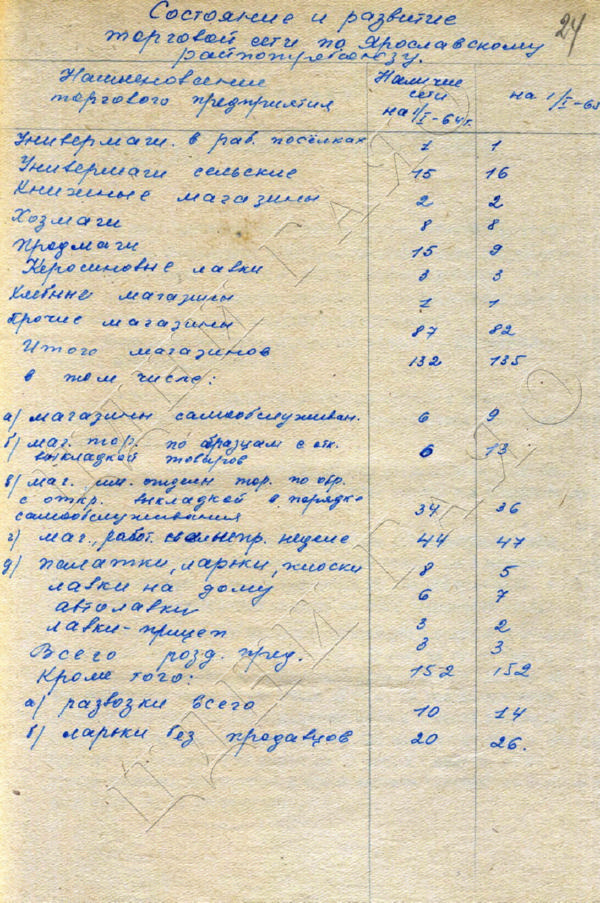 24
Состояние и развитие
торговой сети по Ярославскому
райпотребсоюзу.
Наименование торгового предприятия | Наличие сети на 1/I-64г. | на 1/I-65
Универмаги в раб. посёлках 1 1
Универмаги сельские 15 16
Книжные магазины 2 2
Хозмаги 8 8
Продмаги 15 9
Керосиновые лавки 3 3
Хлебные магазины 1 1
Прочие магазины 87 82
Итого магазинов 132 135
в том числе:
а) магазин самообслуживан. 6 9
б) маг. тор. по образцам с отк.
выкладкой товаров 6 13
в) маг. им. отделы тор. по обр.
с откр. выкладкой в порядке
самообслуживания 34 36
г) маг., работ. неделе 44 47
д) палатки, ларьки, киоски 8 5
лавки на дому 6 7
автолавки 3 2
лавки-прицеп 3 3
Всего розд. пред. 152 152
Кроме того:
а) развозки всего 10 14
б) ларьки без продавцов 20 26.
ЦДНИ ГАЯО
ЦДНИ ГАЯО